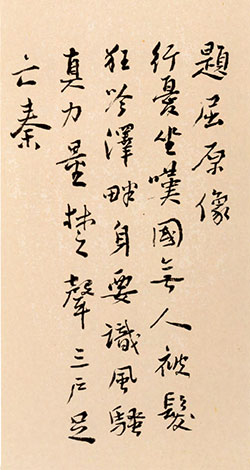 題屈原像
行憂坐嘆國無人被髮
狂吟澤畔身要識風騷
真力量楚聲三戶足
亡秦